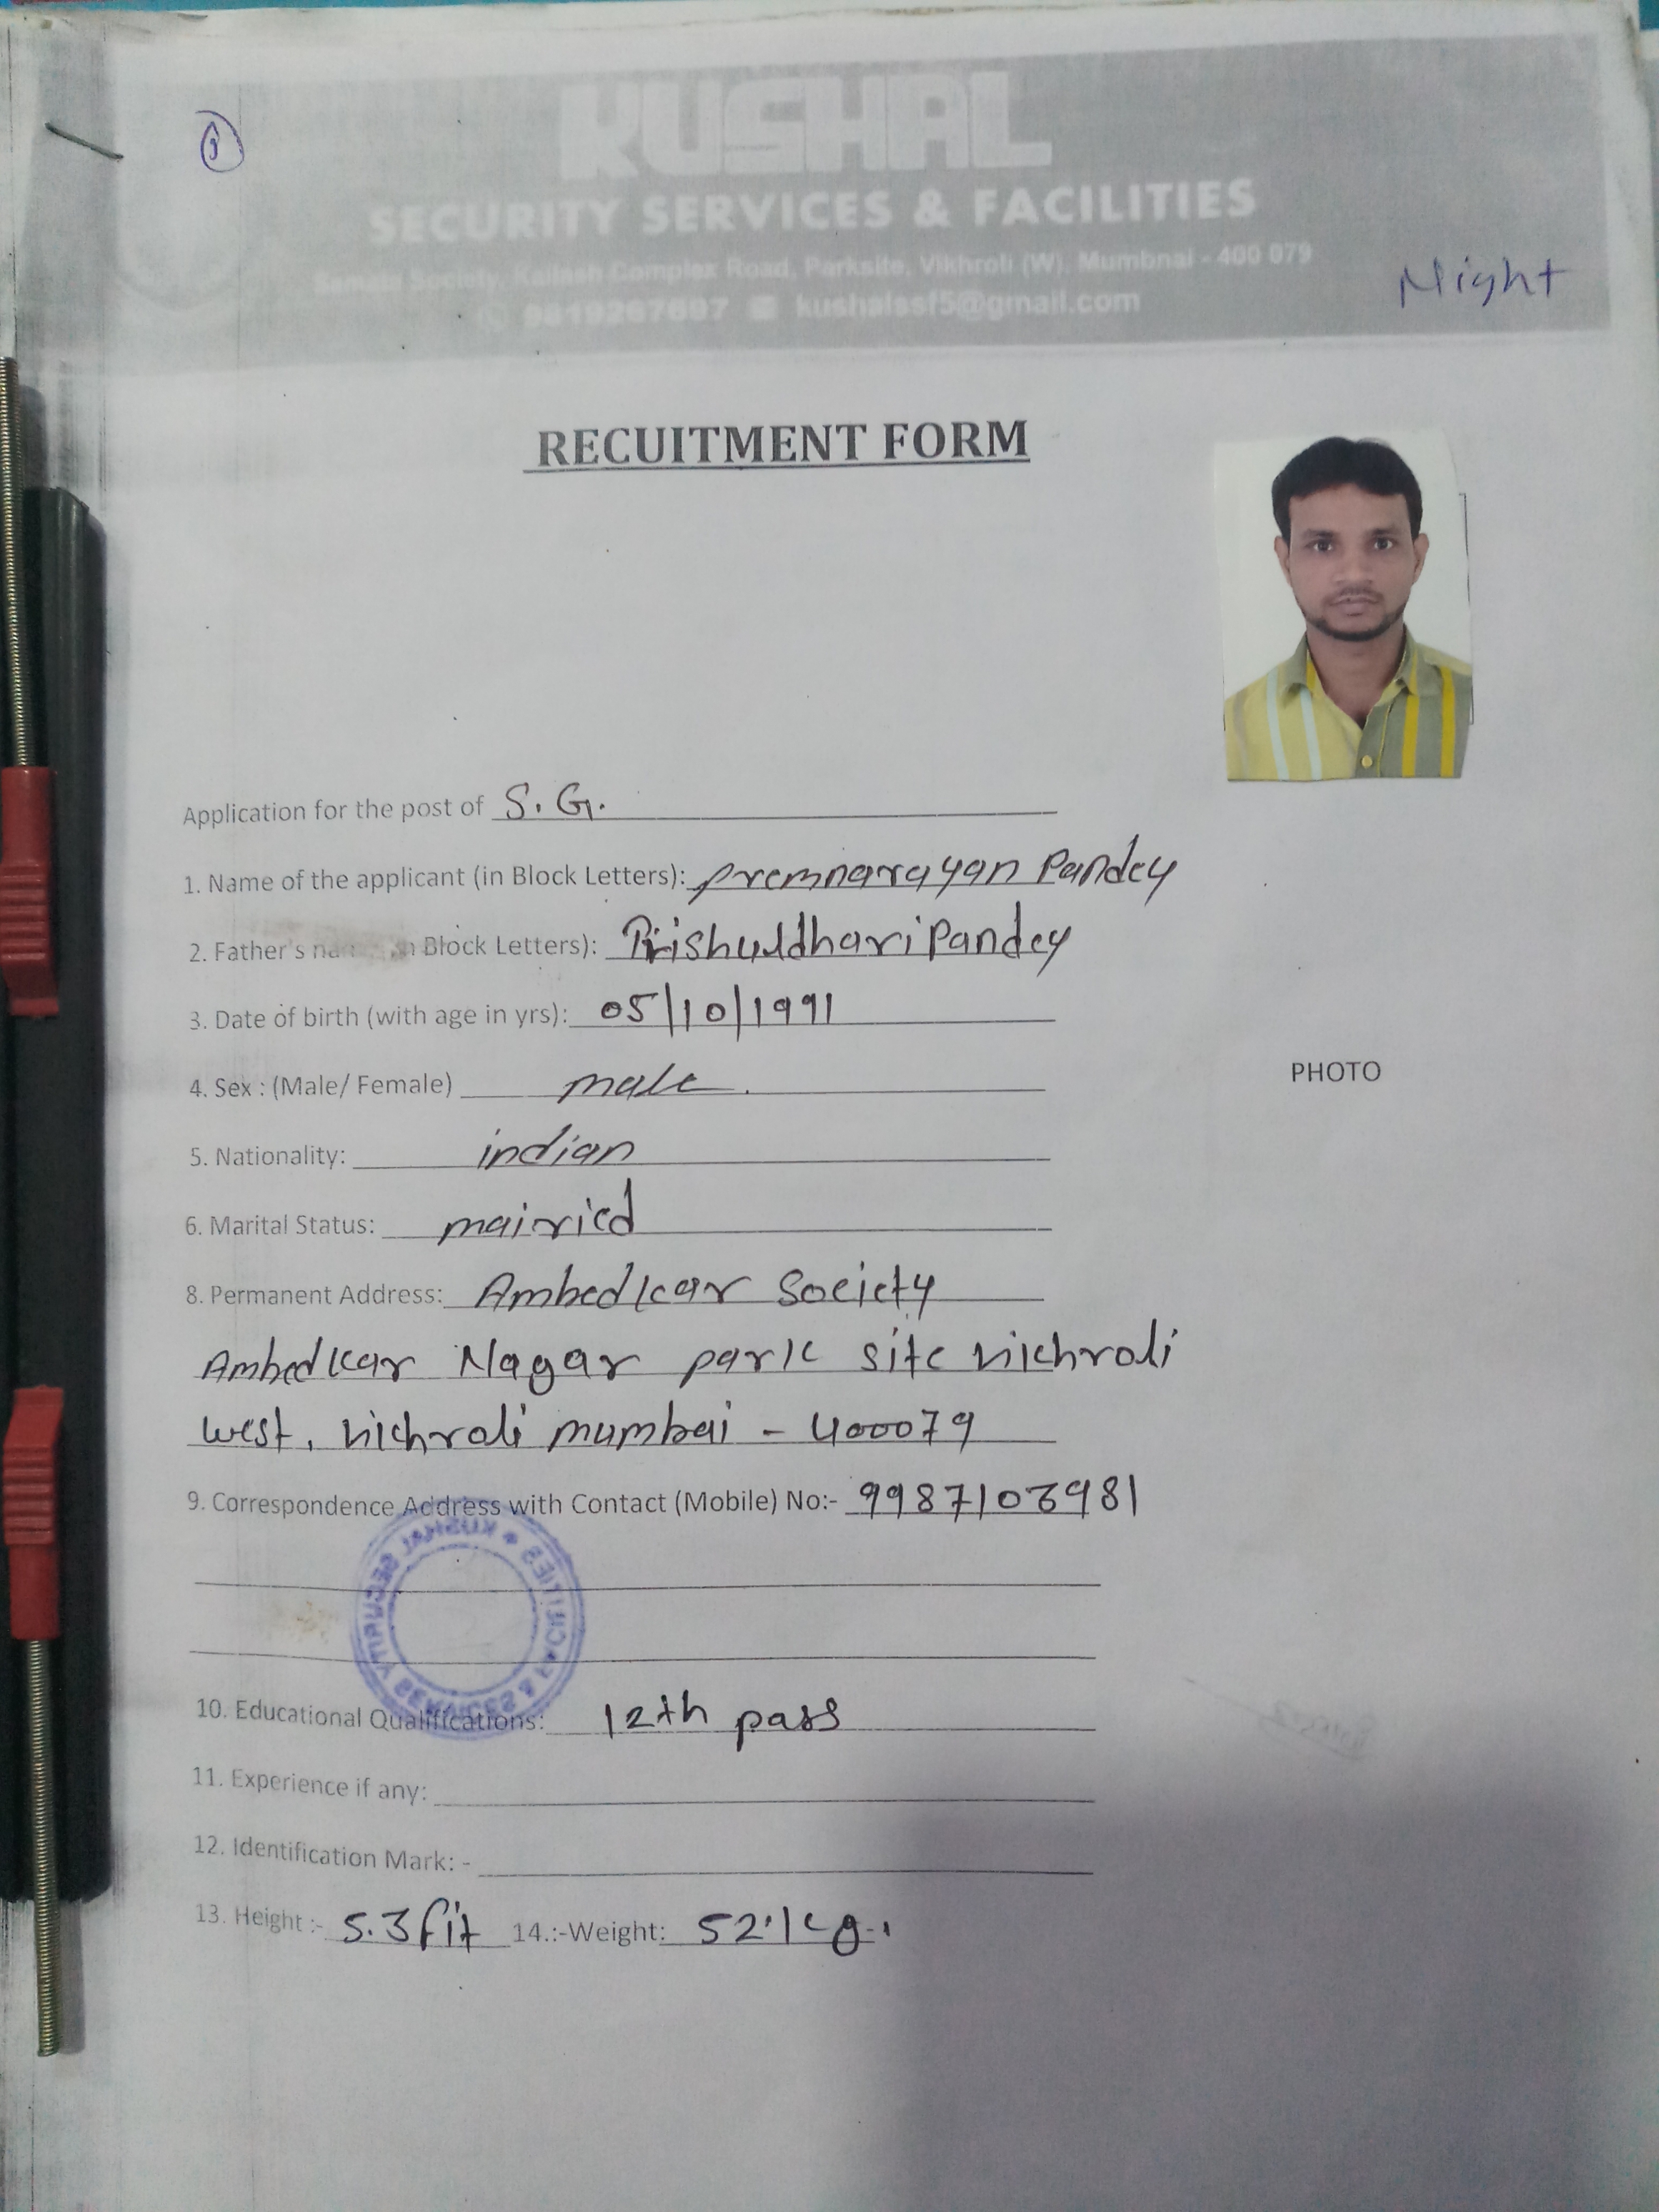 KUSHAL
SECURITY SERVICES & FACILITIES
Samata Society, Kailash Complex Road, Parksite, Vikhroli (W), Mumbnai - 400 079
9819267697 kushalssf5@gmail.com
Night
RECUITMENT FORM
Application for the post of S.G.
1. Name of the applicant (in Block Letters): premnarayan Pandey
2. Father's Block Letters): Pandey
3. Date of birth (with age in yrs): 05/10/1991
4. Sex : (Male/ Female) male.
PHOTO
5. Nationality: indian
6. Marital Status: mairried
8. Permanent Address: Ambedkar Society
Ambedkar Nagar park site vikhroli
west, vikhroli mumbai - 400079
9. Correspondence Address with Contact (Mobile) No:- 9987103981
KUSHAL SECURITY SERVICES & FACILITIES
10. Educational Qualifications: 12th pass
11. Experience if any:
12. Identification Mark: -
13. Height :- 5.3 fit 14.:-Weight: 52.kg.